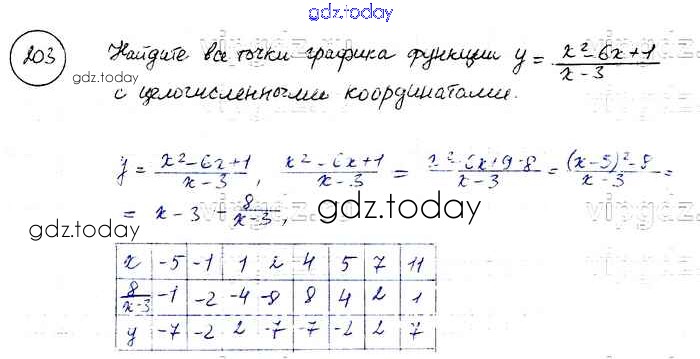 gdz.today
203 Найдите все точки графика функции y = (x² - 6x + 1)/(x - 3)
gdz.today
с целочисленными координатами.
y = (x² - 6x + 1)/(x - 3), (x² - 6x + 1)/(x - 3) = (x² - 6x + 9 - 8)/(x - 3) = ((x - 3)² - 8)/(x - 3) =
= x - 3 - 8/(x - 3),
gdz.today
gdz.today
x -5 -1 1 2 4 5 7 11
8/(x-3) -1 -2 -4 -8 8 4 2 1
y -7 -2 2 7 -7 -2 2 7